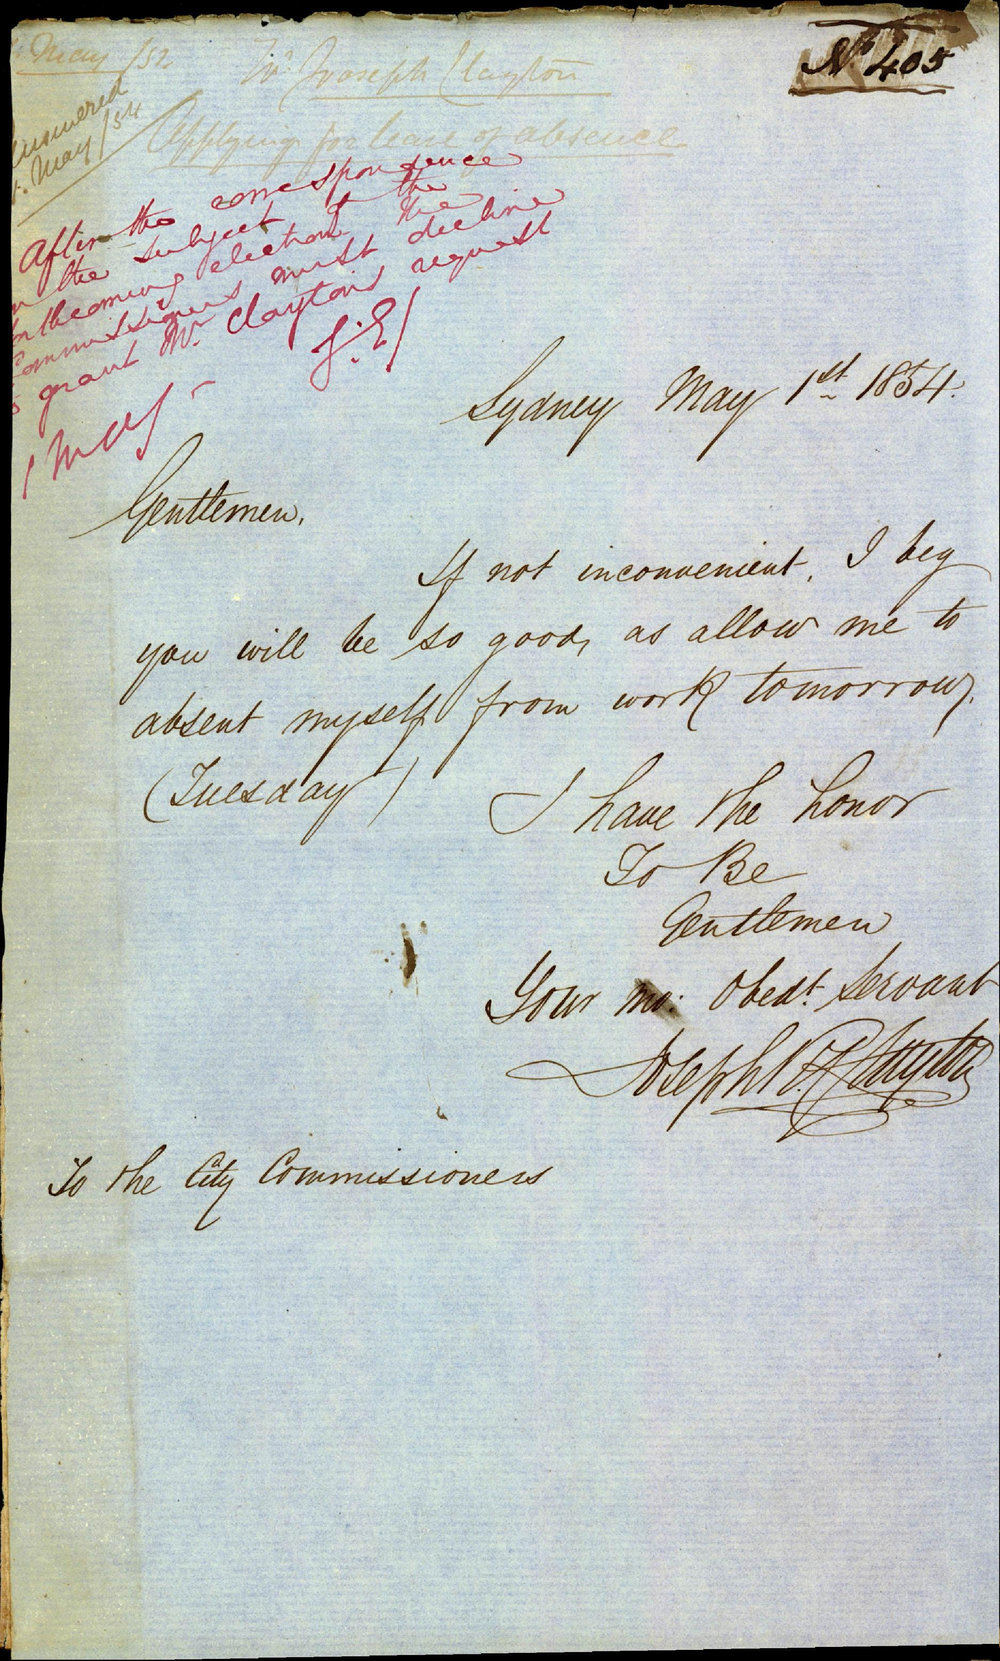 No 405
May /52
Mr Joseph Clayton
Answered
May /54
Applying for leave of absence
After the correspondence
on the subject of the
forthcoming election the
Commissioners must decline
to grant Mr. Clayton's request
1 May
Sydney May 1st 1854.
Gentlemen,
If not inconvenient, I beg
you will be so good, as allow me to
absent myself from work tomorrow,
(Tuesday)
I have the honor
To Be
Gentlemen
Your mo. Obedt. Servant
Joseph Clayton
To the City Commissioners